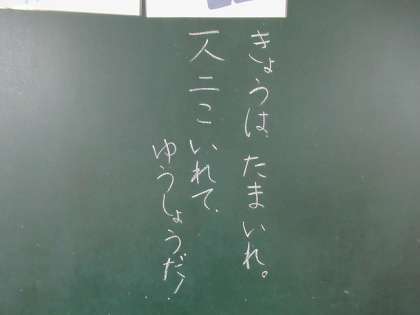 きょうは たまいれ。
一人 二こ いれて、
ゆうしょうだ!